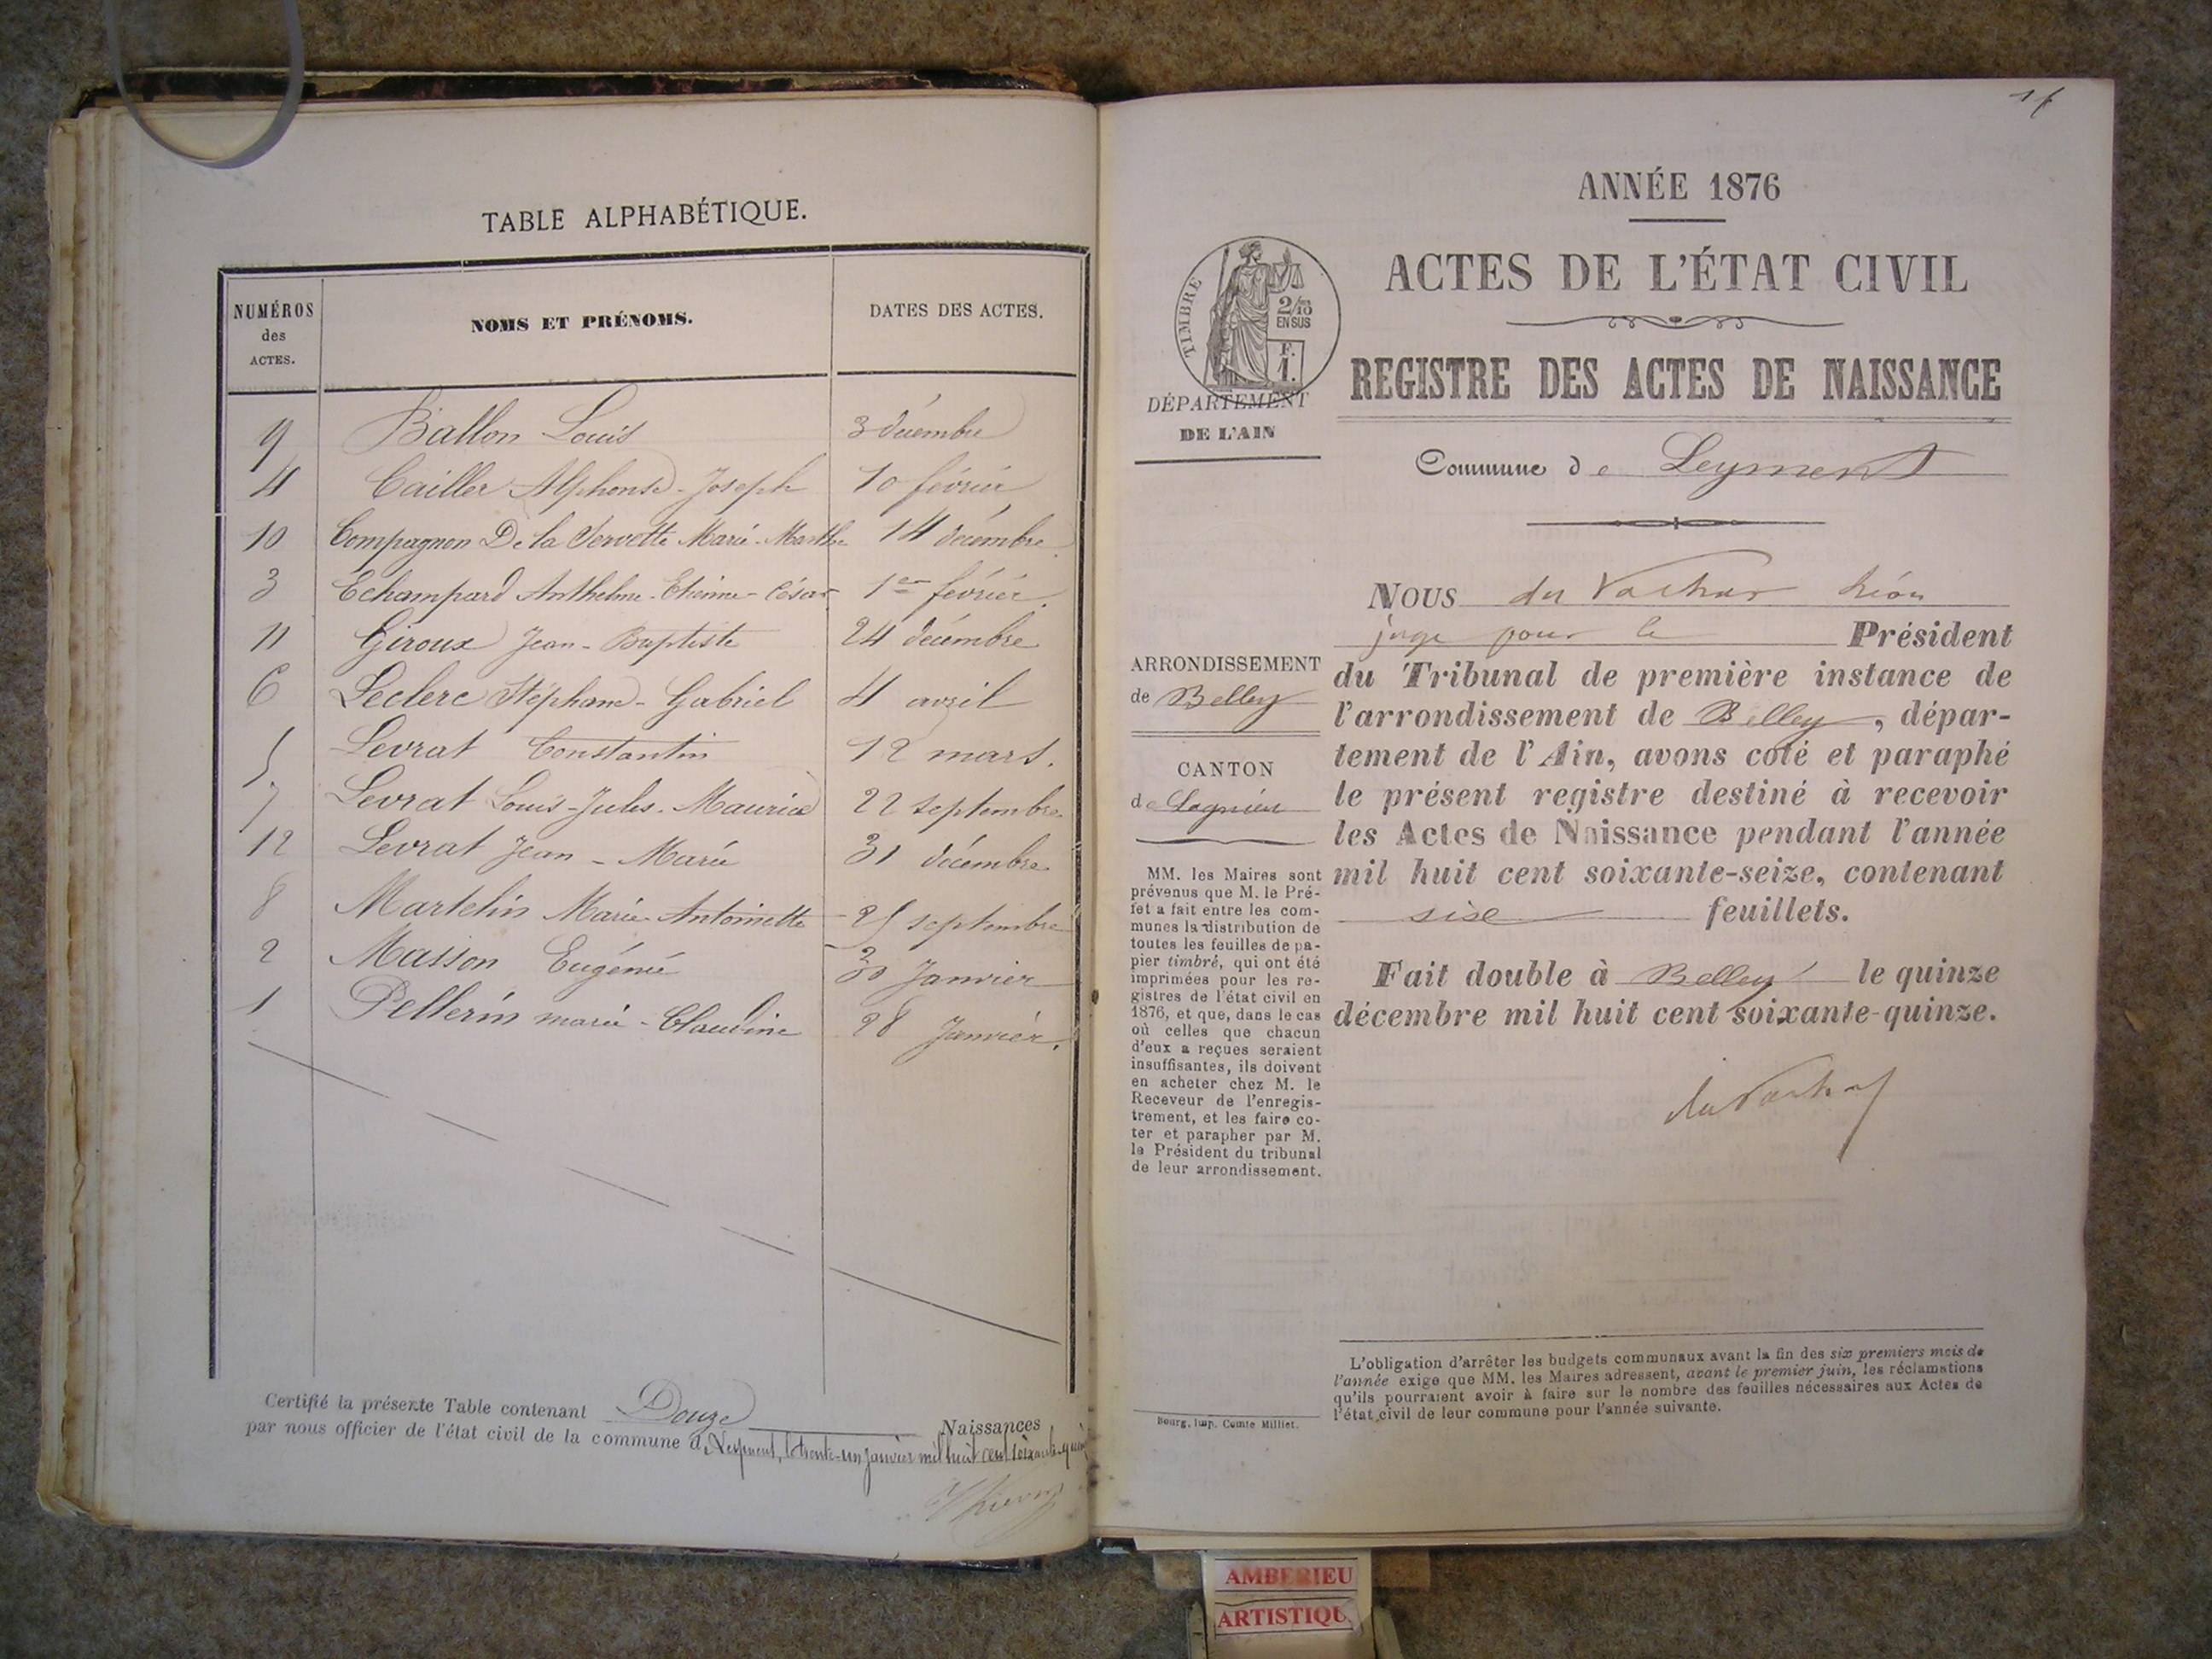 TABLE ALPHABÉTIQUE.
NUMÉROS des ACTES.
NOMS ET PRÉNOMS.
DATES DES ACTES.
9 Ballon Louis 3 décembre
4 Cailler Alphonse-Joseph 10 février
10 Compagnon De la Servette Marie-Marthe 14 décembre
3 Echampard Anthelme-Etienne-César 1er février.
11 Giroux Jean-Baptiste 24 décembre
6 Leclerc Stéphane-Gabriel 4 avril
5 Levrat Constantin 12 mars.
7 Levrat Louis-Jules-Maurice 22 septembre
12 Levrat Jean-Marie 31 décembre
8 Martelin Marie-Antoinette 25 septembre
2 Masson Eugénie 30 Janvier
1 Pellerin marie-Claudine 28 Janvier.
Certifié la présente Table contenant Douze Naissances
par nous officier de l'état civil de la commune de Leyment, le trente-un janvier mil huit cent soixante-
ANNÉE 1876
ACTES DE L'ÉTAT CIVIL
REGISTRE DES ACTES DE NAISSANCE
TIMBRE
2/10
EN SUS
F.
1.
DÉPARTEMENT
DE L'AIN
Commune de Leyment
ARRONDISSEMENT
de Belley
CANTON
de Lagnieu
MM. les Maires sont
prévenus que M. le Pré-
fet a fait entre les com-
munes la distribution de
toutes les feuilles de pa-
pier timbré, qui ont été
imprimées pour les re-
gistres de l'état civil en
1876, et que, dans le cas
où celles que chacun
d'eux a reçues seraient
insuffisantes, ils doivent
en acheter chez M. le
Receveur de l'enregis-
trement, et les faire co-
ter et parapher par M.
le Président du tribunal
de leur arrondissement.
Bourg, Imp. Comte Milliet.
Nous du Vachat Léon
juge pour le Président
du Tribunal de première instance de
l'arrondissement de Belley, dépar-
tement de l'Ain, avons coté et paraphé
le présent registre destiné à recevoir
les Actes de Naissance pendant l'année
mil huit cent soixante-seize, contenant
feuillets.
Fait double à Belley le quinze
décembre mil huit cent soixante-quinze.
du Vachat
L'obligation d'arrêter les budgets communaux avant la fin des six premiers mois de
l'année exige que MM. les Maires adressent, avant le premier juin, les réclamations
qu'ils pourraient avoir à faire sur le nombre des feuilles nécessaires aux Actes de
l'état civil de leur commune pour l'année suivante.
AMBERIEU
ARTISTIQU